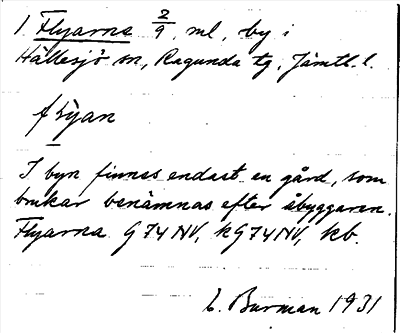 1 Flyarna 2/9 ml, by i
Hällesjö sn, Ragunda tg, Jämtl. l.
I byn finnes endast en gård, som
brukar benämnas efter åbyggaren.
Flyarna G 74 NV, kG74NV, kb.
L. Burman 1931